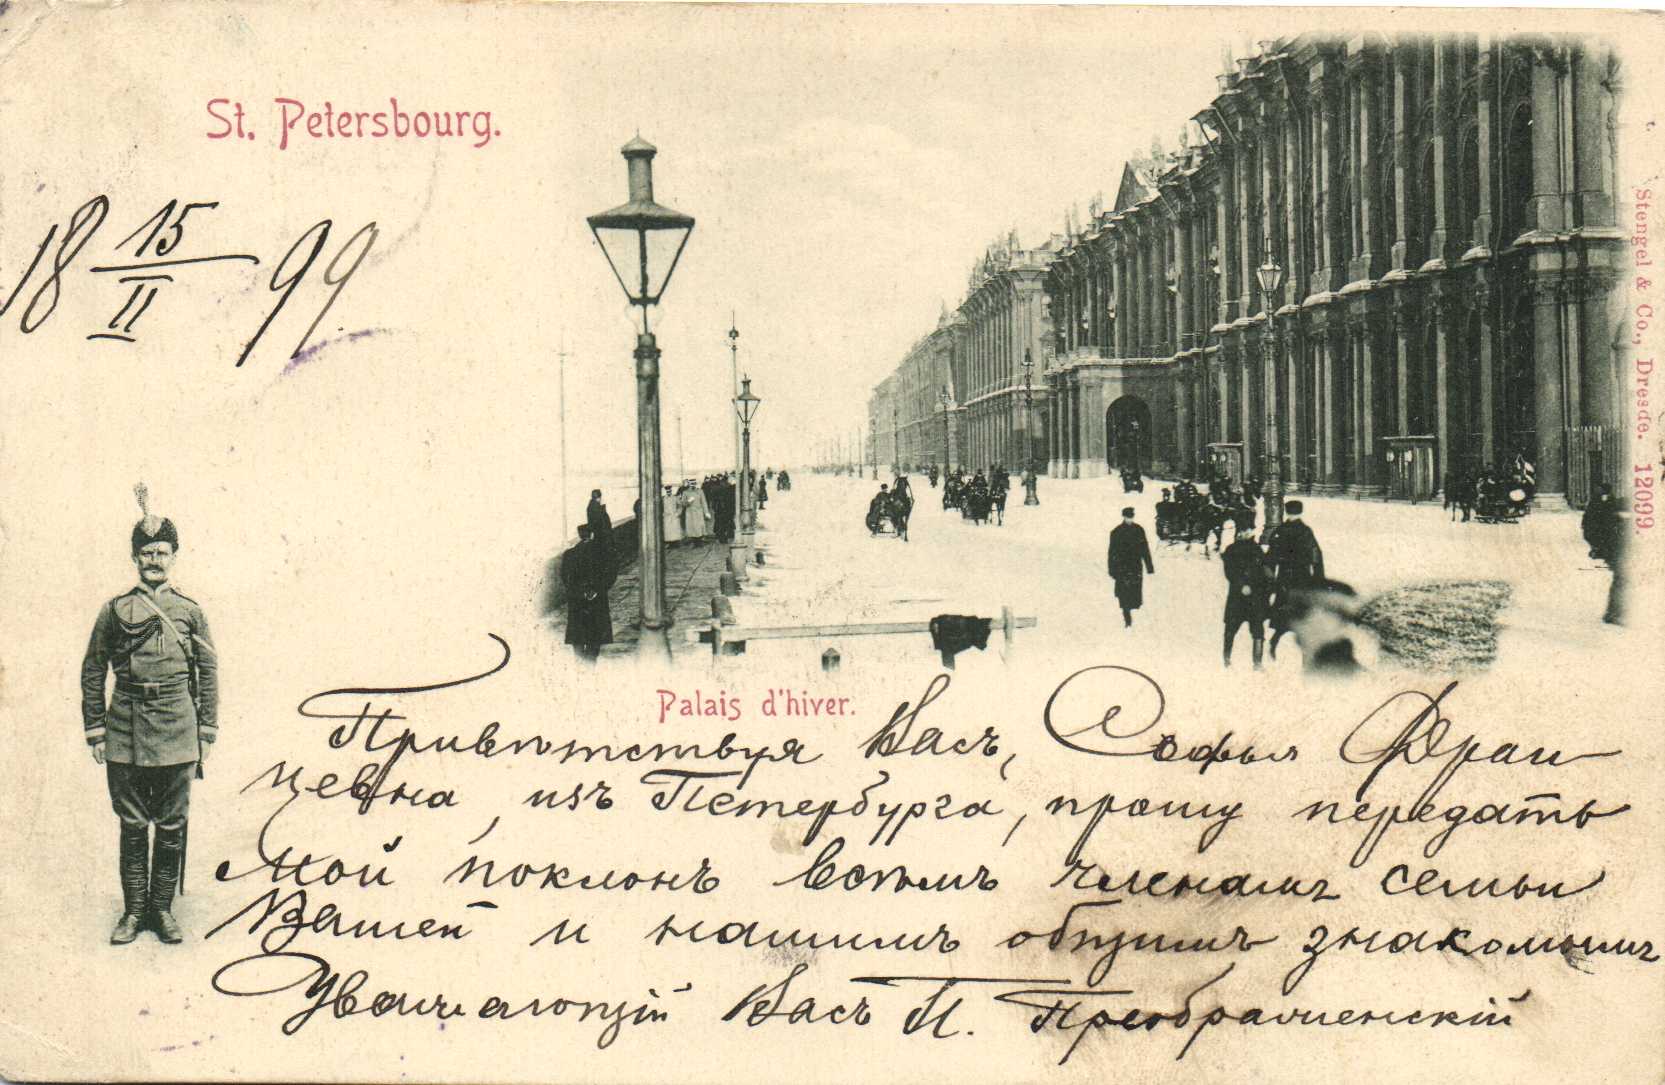 St. Petersbourg.
18 15/II 99
Stengel & Co., Dresde. 12099.
Palais d'hiver.
Привѣтствуя Васъ, Софья Фран
цевна, изъ Петербурга, прошу передать
мой поклонъ всѣмъ членамъ семьи
Вашей и нашимъ общимъ знакомымъ
Уважающій Васъ П. Преображенскій